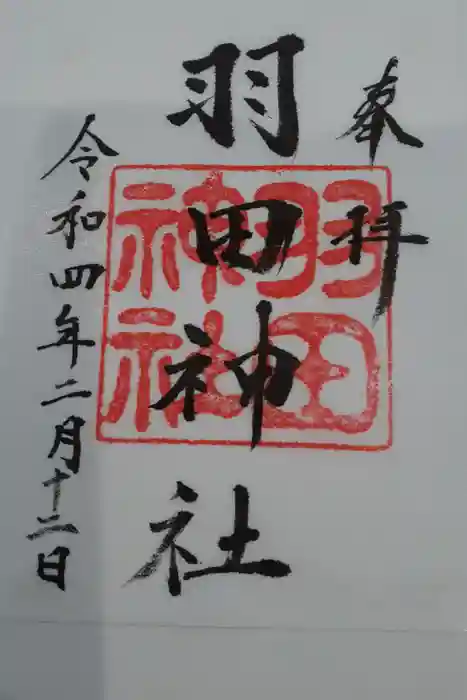 奉拝
羽田神社
羽田神社
令和四年二月十二日